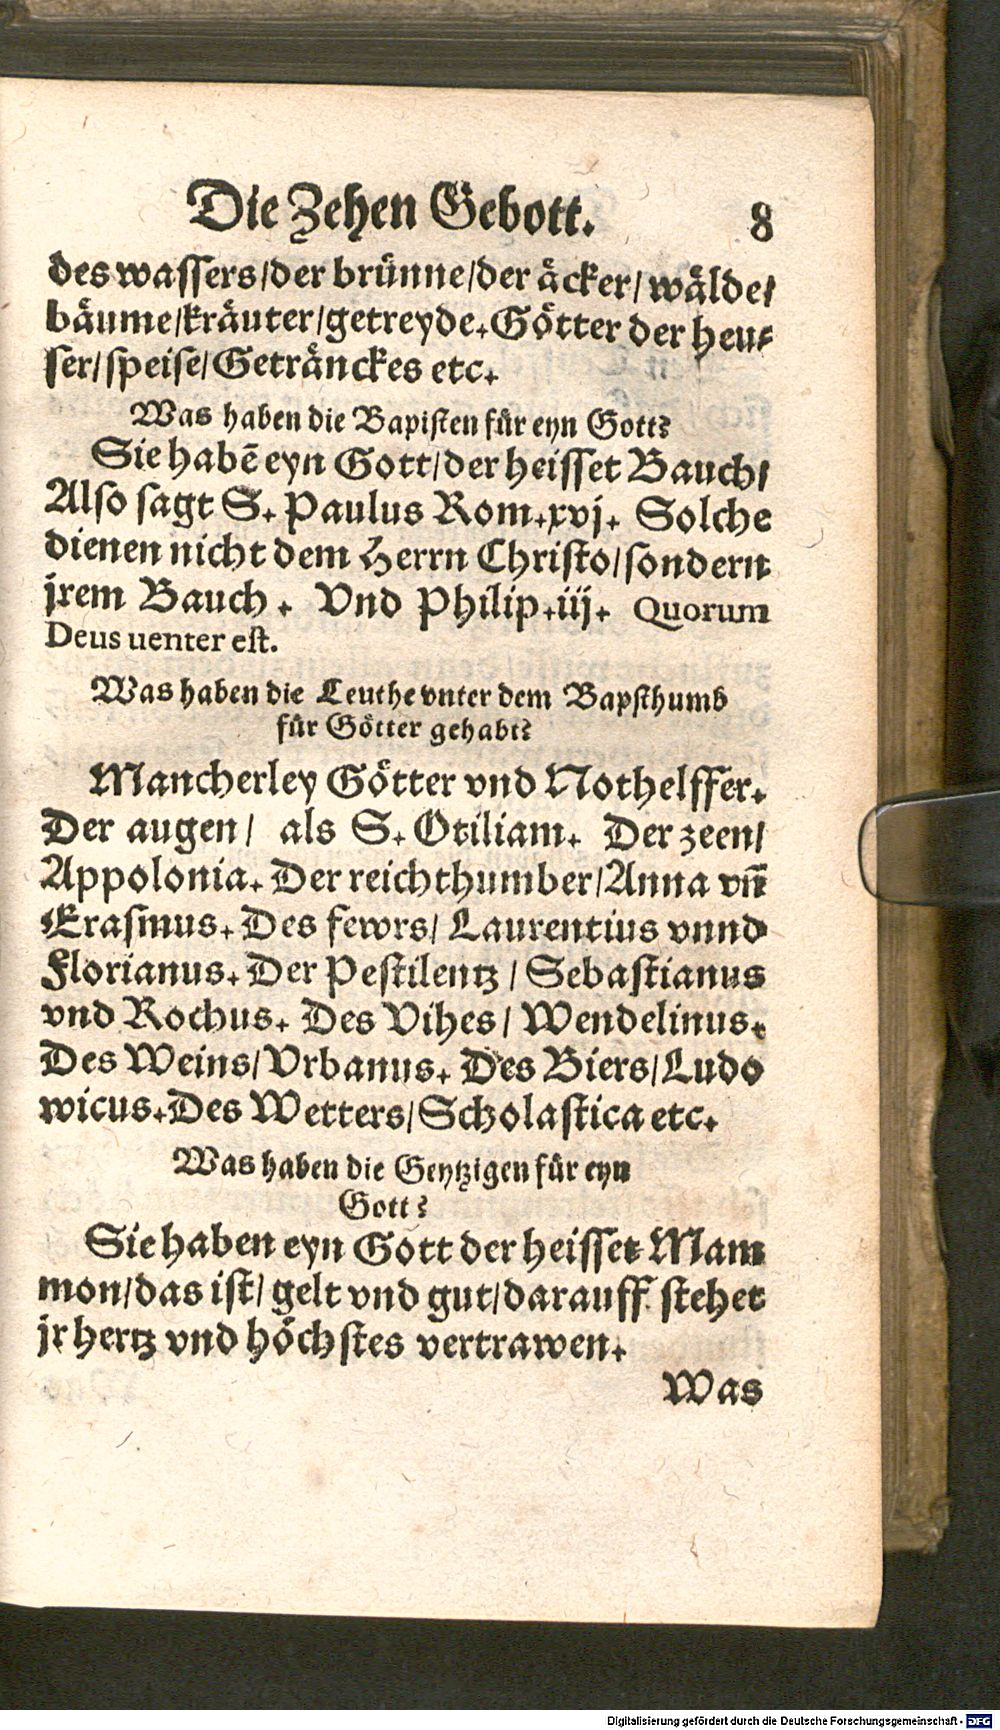 Die Zehen Gebott. 8
des wassers/der brünne/der äcker/wälde/
bäume/kräuter/getreyde.Götter der heu-
ser/speise/Geträncks etc.
Was haben die Bapisten für eyn Gott?
Sie habē eyn Gott/der heisset Bauch/
Also sagt S. Paulus Rom.xvj. Solche
dienen nicht dem Herrn Christo/sondern
jrem Bauch. Vnd Philip.iij. Quorum
Deus uenter est.
Was haben die Leuthe vnter dem Bapsthumb
für Götter gehabt?
Mancherley Götter vnd Nothelffer.
Der augen/ als S. Otiliam. Der zeen/
Appolonia. Der reichthumber/Anna vñ
Erasmus. Des fewrs/ Laurentius vnnd
Florianus. Der Pestilentz/Sebastianus
vnd Rochus. Des Vihes/ Wendelinus.
Des Weins/Vrbanus. Des Biers/Ludo
wicus.Des Wetters/Scholastica etc.
Was haben die Geytzigen für eyn
Gott?
Sie haben eyn Gott der heisset Mam
mon/das ist/ gelt vnd gut/darauff stehet
jr hertz vnd höchstes vertrawen.
Was
Digitalisierung gefördert durch die Deutsche Forschungsgemeinschaft - DFG